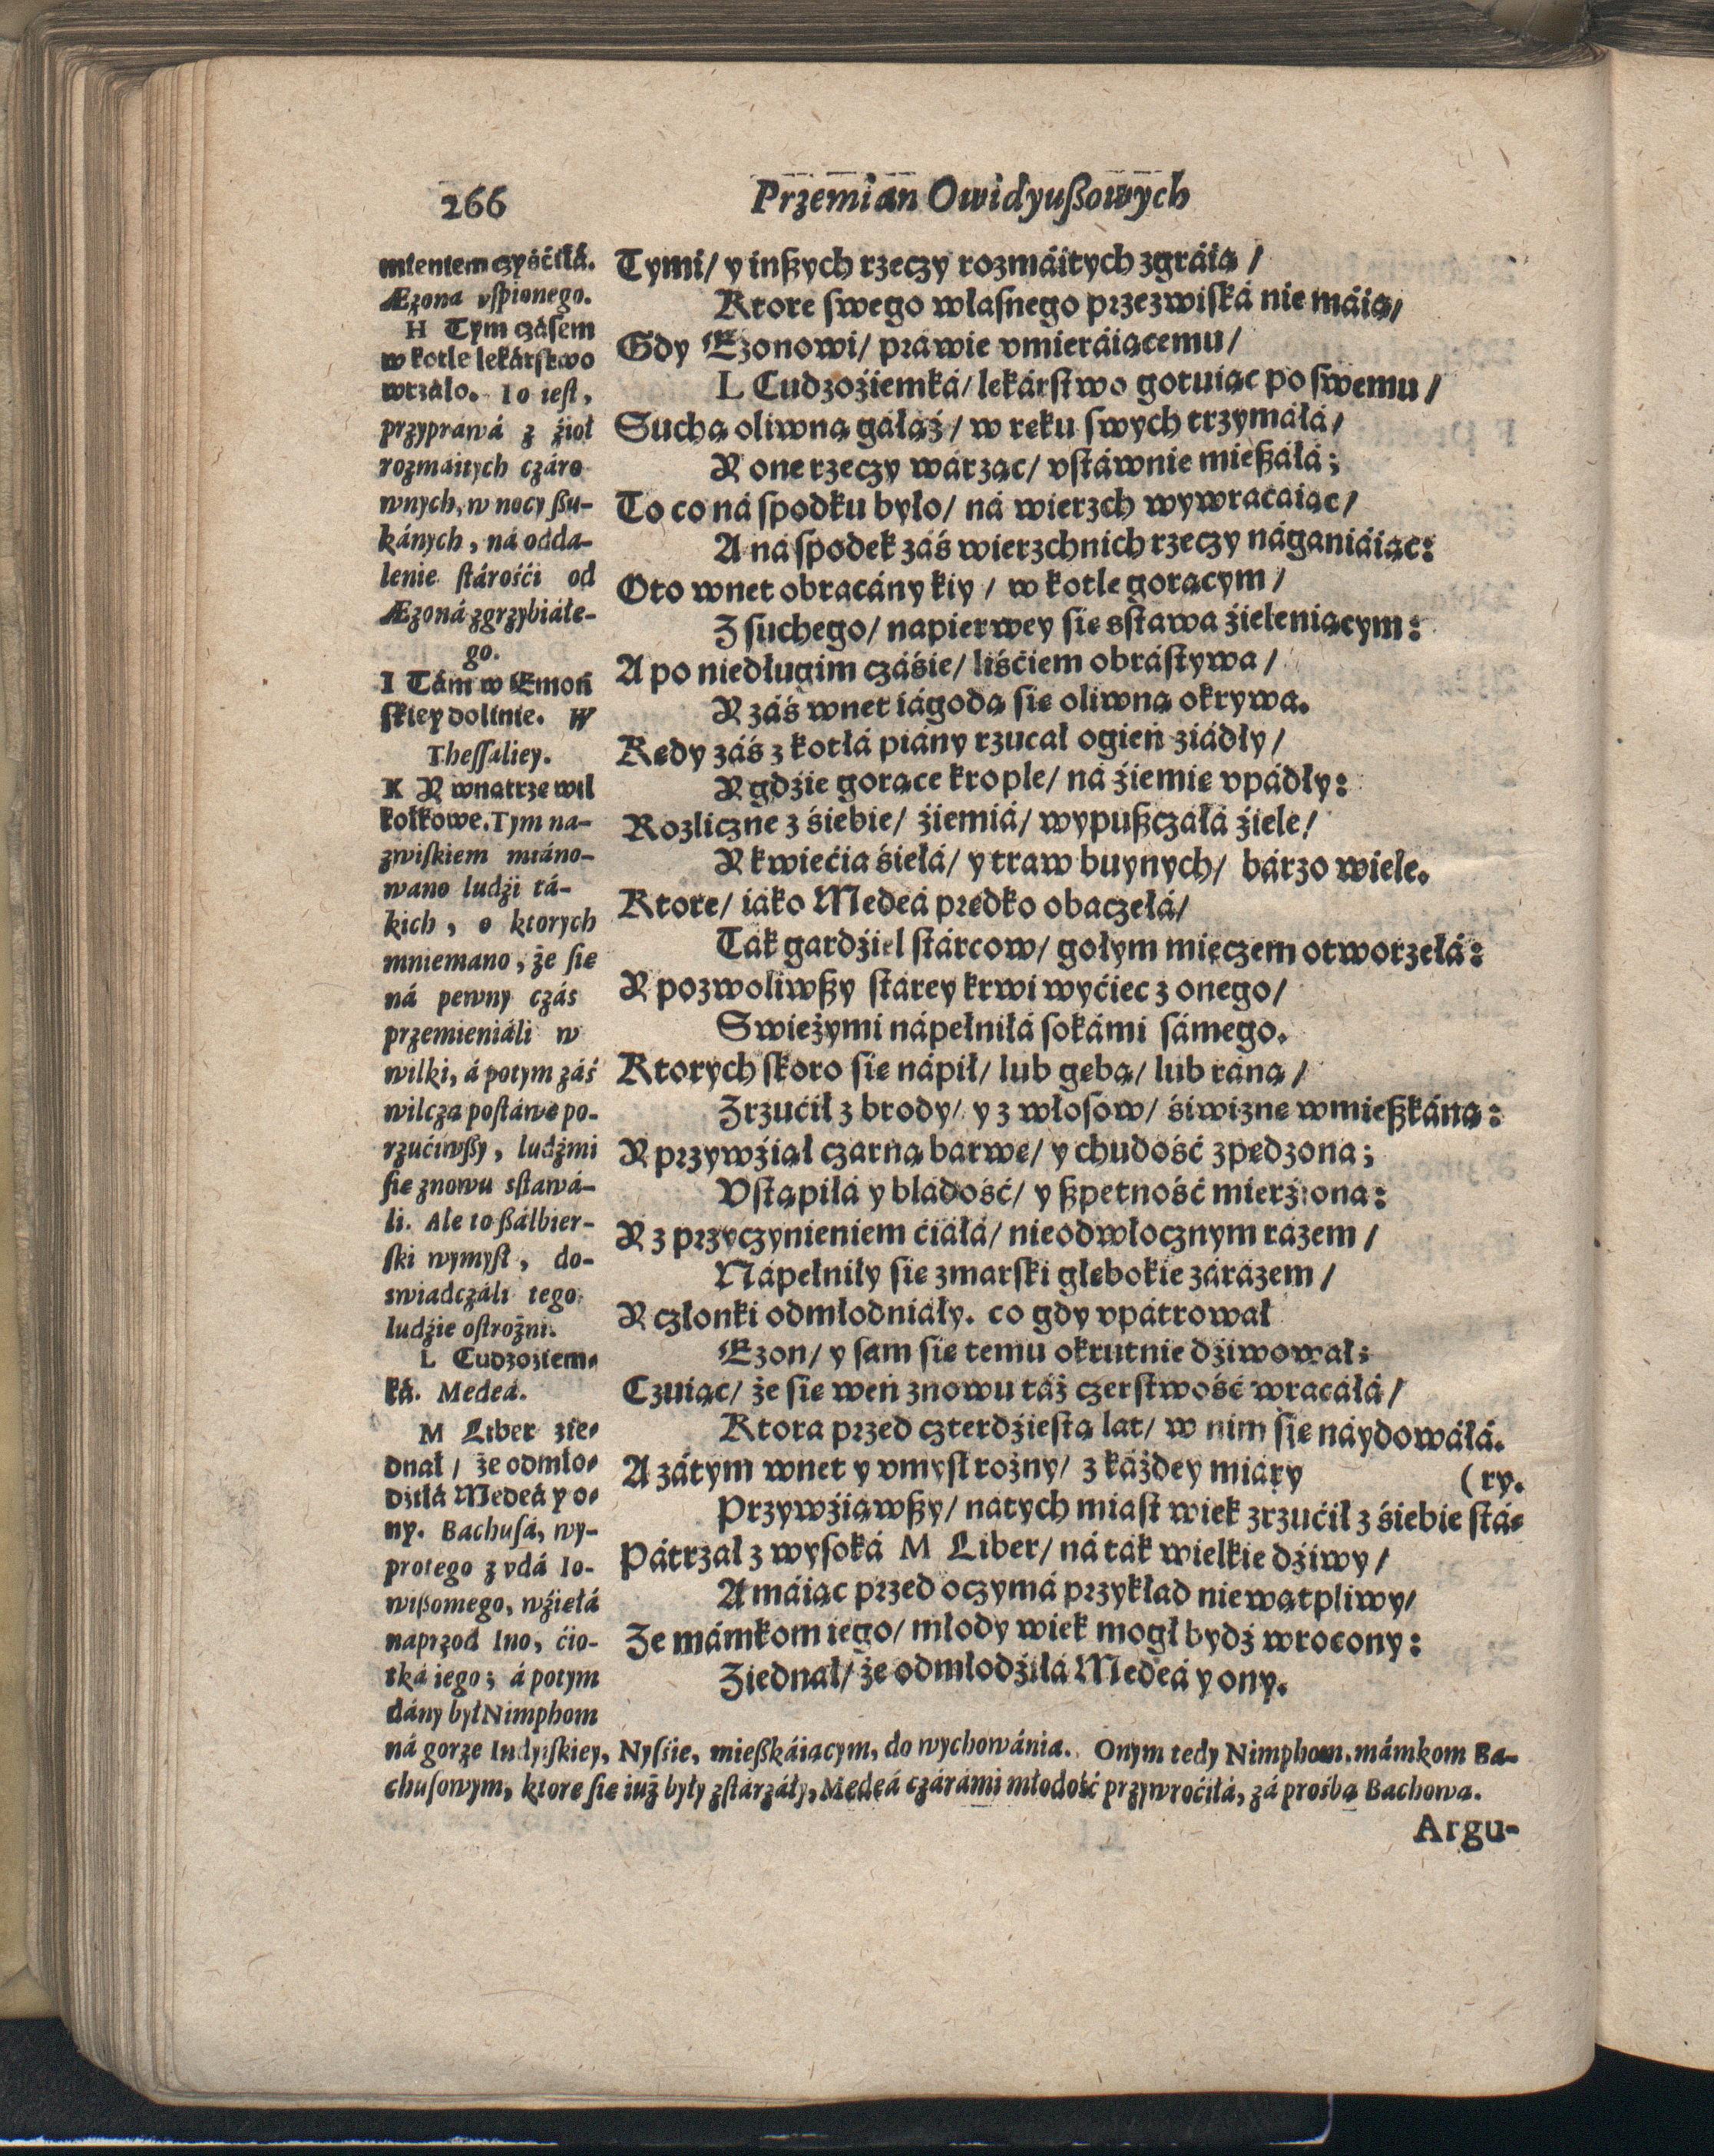 266
Przemian Owidyußowych
mieniem czyśćiłá.
Æzona vſpionego.
H Tym czáſem
w kotle lekárſtwo
wrzáło. To ieſt,
przypráwá z źioł
rozmáitych czáro
wnych, w nocy ßu-
kánych, ná odda-
lenie ſtárośći od
Æzoná zgrzybiáłe-
go.
I Tám w Emoń
ſkiey dolinie. W
Theſſaliey.
K Y wnątrze wil
kołkowe. Tym na-
zwiſkiem miáno-
wano ludźi tá-
kich, o ktorych
mniemano, że ſie
ná pewny czás
przemieniáli w
wilki, á potym záś
wilczą poſtáwę po-
rzućiwßy, ludźmi
ſie znowu sſtawá-
li. Ale to ßálbier-
ſki wymyſł, do-
swiadczáli tego
ludźie oſtrożni.
L Cudzoźiem-
ká. Medeá.
M Liber zie-
dnał / że odmło-
dźiłá Medeá y o-
ny. Bachuſá, wy-
protego z vdá Io-
wißomego, wźięłá
naprzod Ino, ćio-
tká iego; á potym
dány był Nimphom
ná gorze Indyiſkiey, Nyſśie, mießkáiącym, do wychowánia. Onym tedy Nimphom, mámkom Ba-
chuſowym, ktore ſie iuż były zſtárzáły, Medeá czárámi młodość przywroćiłá, zá prośbą Bachową.
Tymi / y inßych rzeczy rozmáitych zgráią /
Ktore ſwego własnego przezwiſká nie máią /
Gdy Ezonowi / práwie vmieráiącemu /
L Cudzoźiemká / lekárſtwo gotuiąc po ſwemu /
Suchą oliwną gáłąź / w ręku ſwych trzymáłá /
Y one rzeczy wárząc / vſtáwnie mießáłá;
To co ná ſpodku było / ná wierzch wywracáiąc /
A ná ſpodek záś wierzchnich rzeczy nágániáiąc:
Oto wnet obracány kiy / w kotle gorącym /
Z ſuchego / napierwey ſie sſtawa źieleniącym:
A po niedługim czáśie / liśćiem obráſtywa /
Y záś wnet iágodą ſie oliwną okrywa.
Kędy záś z kotłá piány rzucał ogień ziádły /
Y gdźie gorące krople / ná źiemię vpádły:
Rozliczne z śiebie / źiemiá / wypußczáłá źiele /
Y kwiećia śiełá / y traw buynych / bárzo wiele.
Ktore / iáko Medeá prędko obaczełá /
Ták gardźiel ſtárcow / gołym mieczem otworzełá:
Y pozwoliwßy ſtárey krwi wyćiec z onego /
Swieżymi nápełniłá ſokámi ſámego.
Ktorych ſkoro ſie nápił / lub gębą / lub ráną /
Zrzućił z brody / y z włoſow / śiwiznę wmießkáną:
Y przywźiął czarną barwę / y chudość zpędzona;
Vſtąpiłá y bládość / y ßpetność mierźiona:
Y z przyczynieniem ćiáłá / nieodwłocznym rázem /
Nápełniły ſie zmarski głębokie zárázem /
Y członki odmłodniáły. co gdy vpátrował
Ezon / y ſam ſie temu okrutnie dźiwował:
Czuiąc / że ſie weń znowu táż czerſtwość wracáłá /
Ktora przed czterdźieſtą lat / w nim ſie náydowáłá.
A zátym wnet y vmyſł rożny / z káżdey miáry
(ry.
Przywźiąwßy / natych miaſt wiek zrzućił z śiebie ſtá-
Pátrzał z wyſoká M Liber / ná ták wielkie dźiwy /
A máiąc przed oczymá przykład niewątpliwy /
Ze mámkom iego / młody wiek mogł bydź wrocony:
Ziednał / że odmłodźiłá Medeá y ony.
Argu-